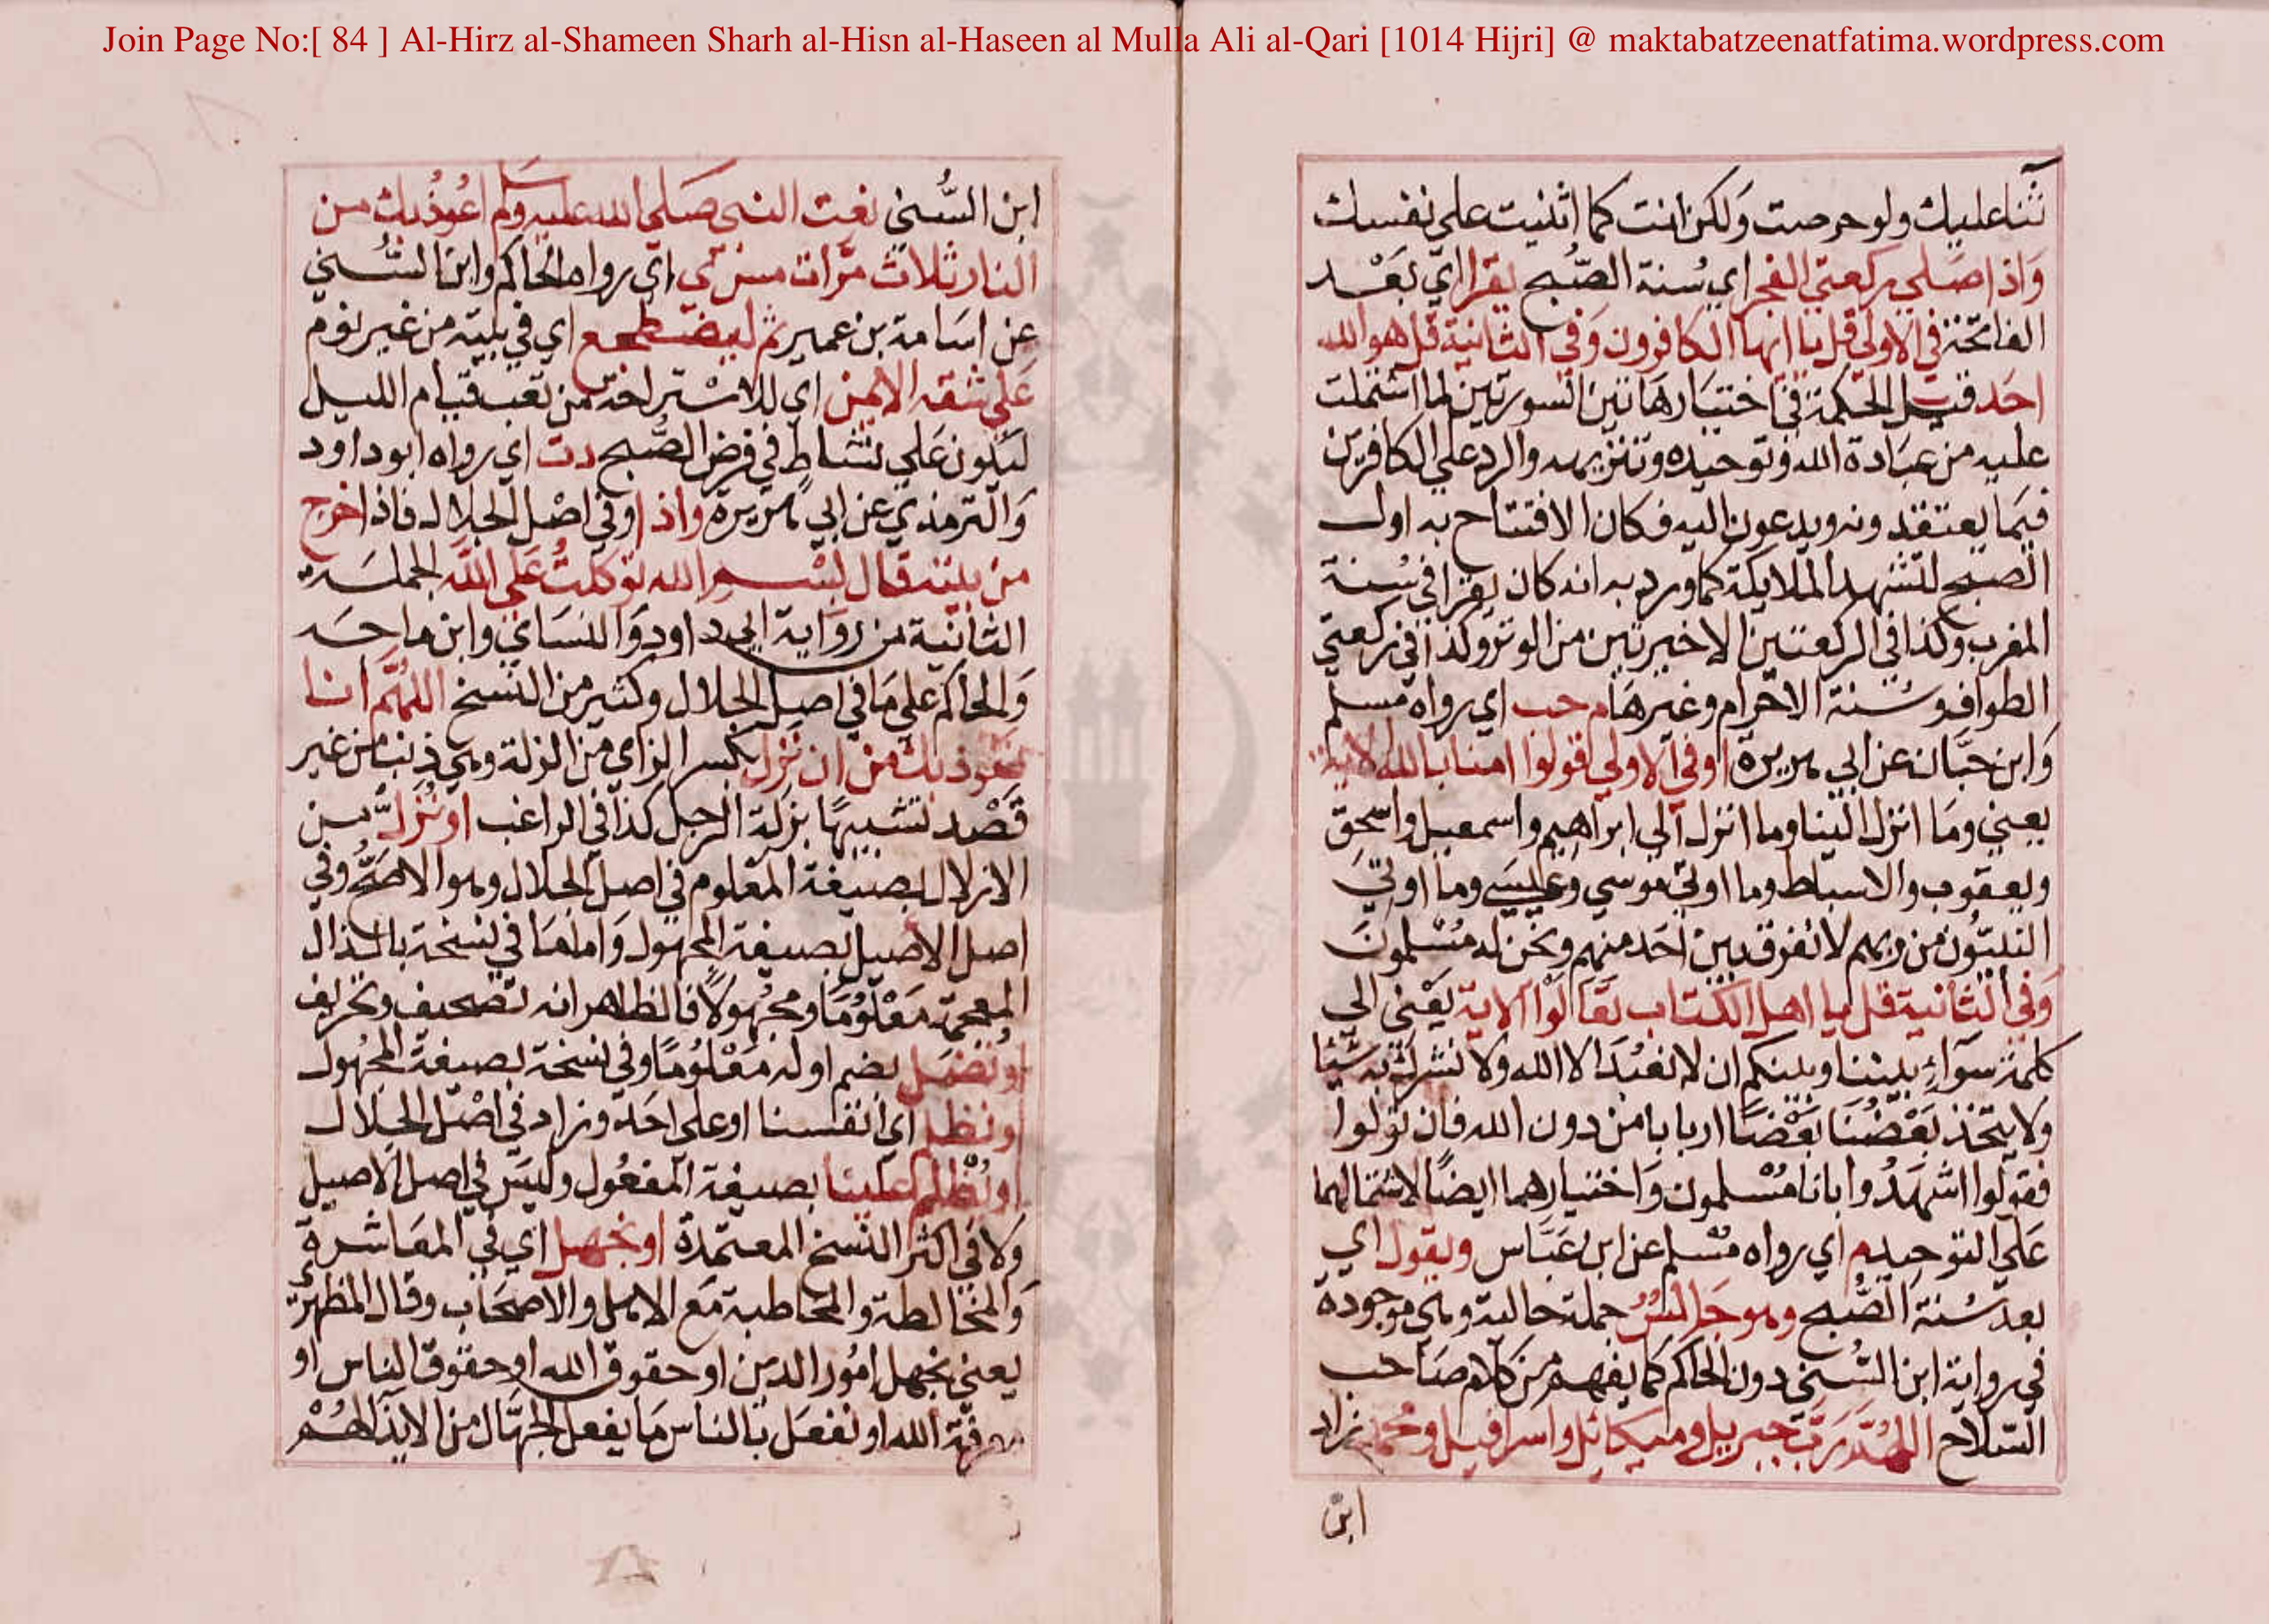 Join Page No:[ 84 ] Al-Hirz al-Shameen Sharh al-Hisn al-Haseen al Mulla Ali al-Qari [1014 Hijri] @ maktabatzeenatfatima.wordpress.com
ثنا عليك ولو حرصت ولكن انت كما اثنيت على نفسك
واذا صلي ركعتي الفجر اي سنة الصبح يقرا اي بعد
الفاتحة في الاولي قل يا ايها الكافرون وفي الثانية قل هو الله
احد قيل الحكمة في اختيار هاتين السورتين لما اشتملت
عليه من عبادة الله وتوحيده وتنزيهه والرد علي الكافرين
فيما يعتقدونه ويدعون اليه فكان الافتتاح به اول
الصبح لتشهد الملايكة كما ورد به انه كان يقرا في سنة
المغرب وكذا في الركعتين الاخيرتين من الوتر وكذا في ركعتي
الطواف وسنة الاحرام وغيرها م حب اي رواه مسلم
وابن حبان عن ابي هريرة او في الاولي قولوا امنا بالله الاية
يعني وما انزل الينا وما انزل الي ابراهيم واسمعيل واسحق
ويعقوب والاسباط وما اوتي موسي وعيسي وما اوتي
النبيون من ربهم لا نفرق بين احد منهم ونحن له مسلمون
وفي الثانية قل يا اهل الكتاب تعالوا الاية يعني الي
كلمة سواء بيننا وبينكم ان لا نعبد الا الله ولا نشرك به شيئا
ولا يتخذ بعضنا بعضا اربابا من دون الله فان تولوا
فقولوا اشهدوا بانا مسلمون واختيارهما ايضا لاشتمالهما
علي التوحيد م اي رواه مسلم عن ابن عباس ويقول اي
بعد سنة الصبح وهو جالس جملة حالية وهي موجودة
في رواية ابن السني دون الحاكم كما يفهم من كلام صاحب
السلاح اللهم رب جبريل وميكائل واسرافيل ومحمد زاد
ابن
ابن السني نعت النبي صلي الله عليه وسلم اعوذ بك من
النار ثلاث مرات مس ي اي رواه الحاكم وابن السني
عن اسامة بن عمير ثم ليضطجع اي في بيته من غير نوم
علي شقه الايمن اي للاستراحة من تعب قيام الليل
ليكون علي نشاط في فرض الصبح دت اي رواه ابو داود
والترمذي عن ابي هريرة واذا وفي اصل الجلال فاذا خرج
من بيته قال بسم الله توكلت علي الله الجملة
الثانية من رواية ابي داود والنسائي وابن ماجه
والحاكم علي ما في اصل الجلال وكثير من النسخ اللهم انا
نعوذ بك من ان نزل بكسر الزاي من الزلة وهي ذنب من غير
قصد تشبيها بزلة الرجل كذا في الراغب او نزل من
الازلال بصيغة المعلوم في اصل الجلال وهو الاصح وفي
اصل الاصيل بصيغة المجهول واما ما في نسخة بالذال
المعجمة معلوما ومجهولا فالظاهر انه تصحيف وتحريف
او نضل بضم اوله معلوما وفي نسخة بصيغة المجهول
او نظلم اي انفسنا او علي احد وزاد في اصل الجلال
او نظلم علينا بصيغة المفعول وليس في اصل الاصيل
ولا في اكثر النسخ المعتمدة او نجهل اي في المعاشرة
والمخالطة والمخاطبة مع الاهل والاصحاب وقال المظهر
يعني نجهل امور الدين او حقوق الله او حقوق الناس او
معرفة الله او نفعل بالناس ما يفعل الجهال من الايذا لهم